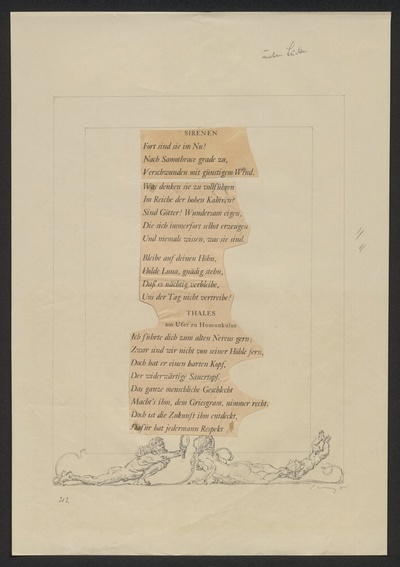 SIRENEN
Fort sind sie im Nu!
Nach Samothrace grade zu,
Verschwunden mit günstigem Wind.
Was denken sie zu vollführen
Im Reiche der hohen Kabiren?
Sind Götter! Wundersam eigen,
Die sich immerfort selbst erzeugen
Und niemals wissen, was sie sind.
Bleibe auf deinen Höhn,
Holde Luna, gnädig stehn,
Daß es nächtig verbleibe,
Uns der Tag nicht vertreibe!
THALES
am Ufer zu Homunkulus
Ich führte dich zum alten Nereus gern;
Zwar sind wir nicht von seiner Höhle fern,
Doch hat er einen harten Kopf,
Der widerwärtige Sauertopf.
Das ganze menschliche Geschlecht
Macht's ihm, dem Griesgram, nimmer recht.
Doch ist die Zukunft ihm entdeckt,
Dafür hat jedermann Respekt
212